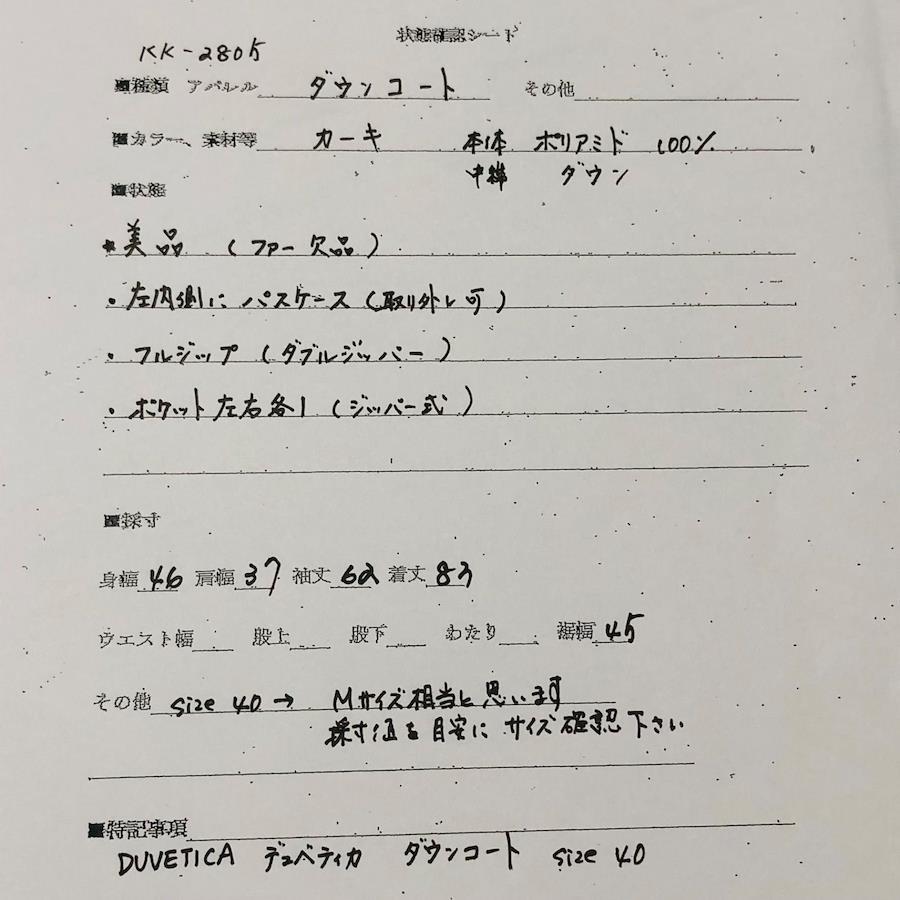 状態確認シート
KK-2805
■種類 アパレル ダウンコート その他
■カラー、素材等 カーキ 本体 ポリアミド 100%
中綿 ダウン
■状態
・美品 (ファー欠品)
・左内側に パスケース(取り外し可)
・フルジップ (ダブルジッパー)
・ポケット左右各1 (ジッパー式)
■採寸
身幅 46 肩幅 37 袖丈 62 着丈 83
ウエスト幅 股上 股下 わたり 裾幅 45
その他 size 40 → Mサイズ相当と思います
採寸値を目安に サイズ確認下さい
■特記事項
DUVETICA デュベティカ ダウンコート size 40